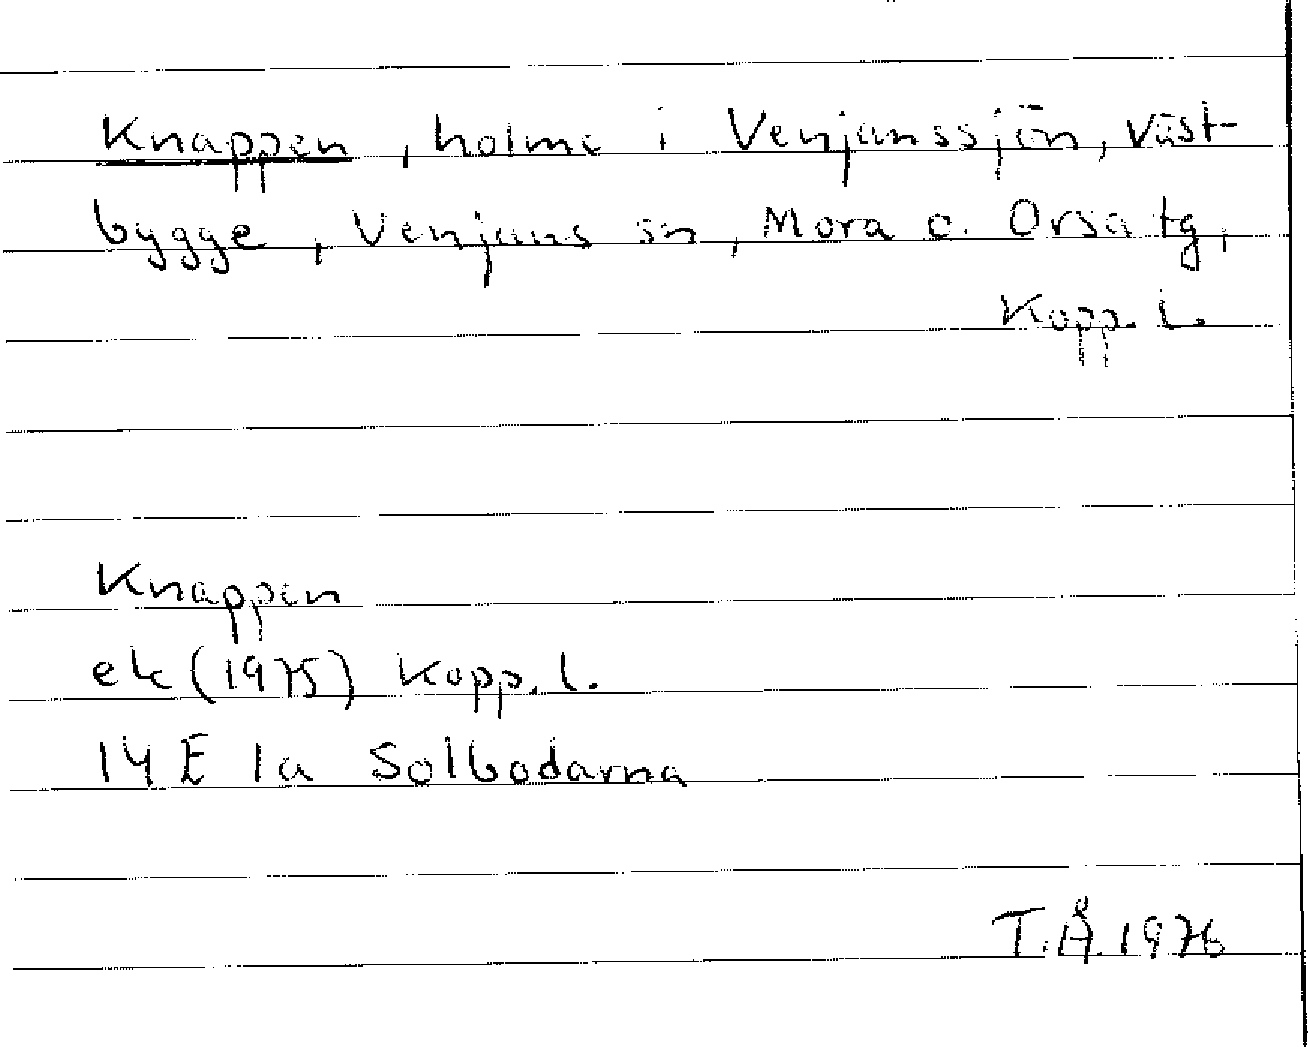 Knappen, holme i Venjanssjön, Väst-
bygge, Venjans sn, Mora o. Orsa tg,
Kopp. l.
Knappen
ek (1975) Kopp. l.
14 E 1a Solbodarna
T.Å. 1976